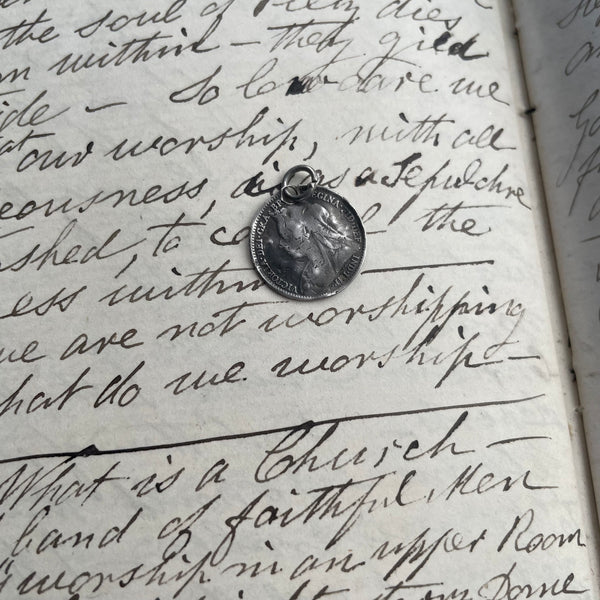 the soul of Piety dies
on within - they gild
ide - So low dare we
at our worship, with all
eousness, as a Sepulchre
shed, to the
ess within
we are not worshipping
hat do we worship -
What is a Church -
band of faithful Men
"worship in an upper Room
Dome
VICTORIA·DEI·GRA·BR REGINA